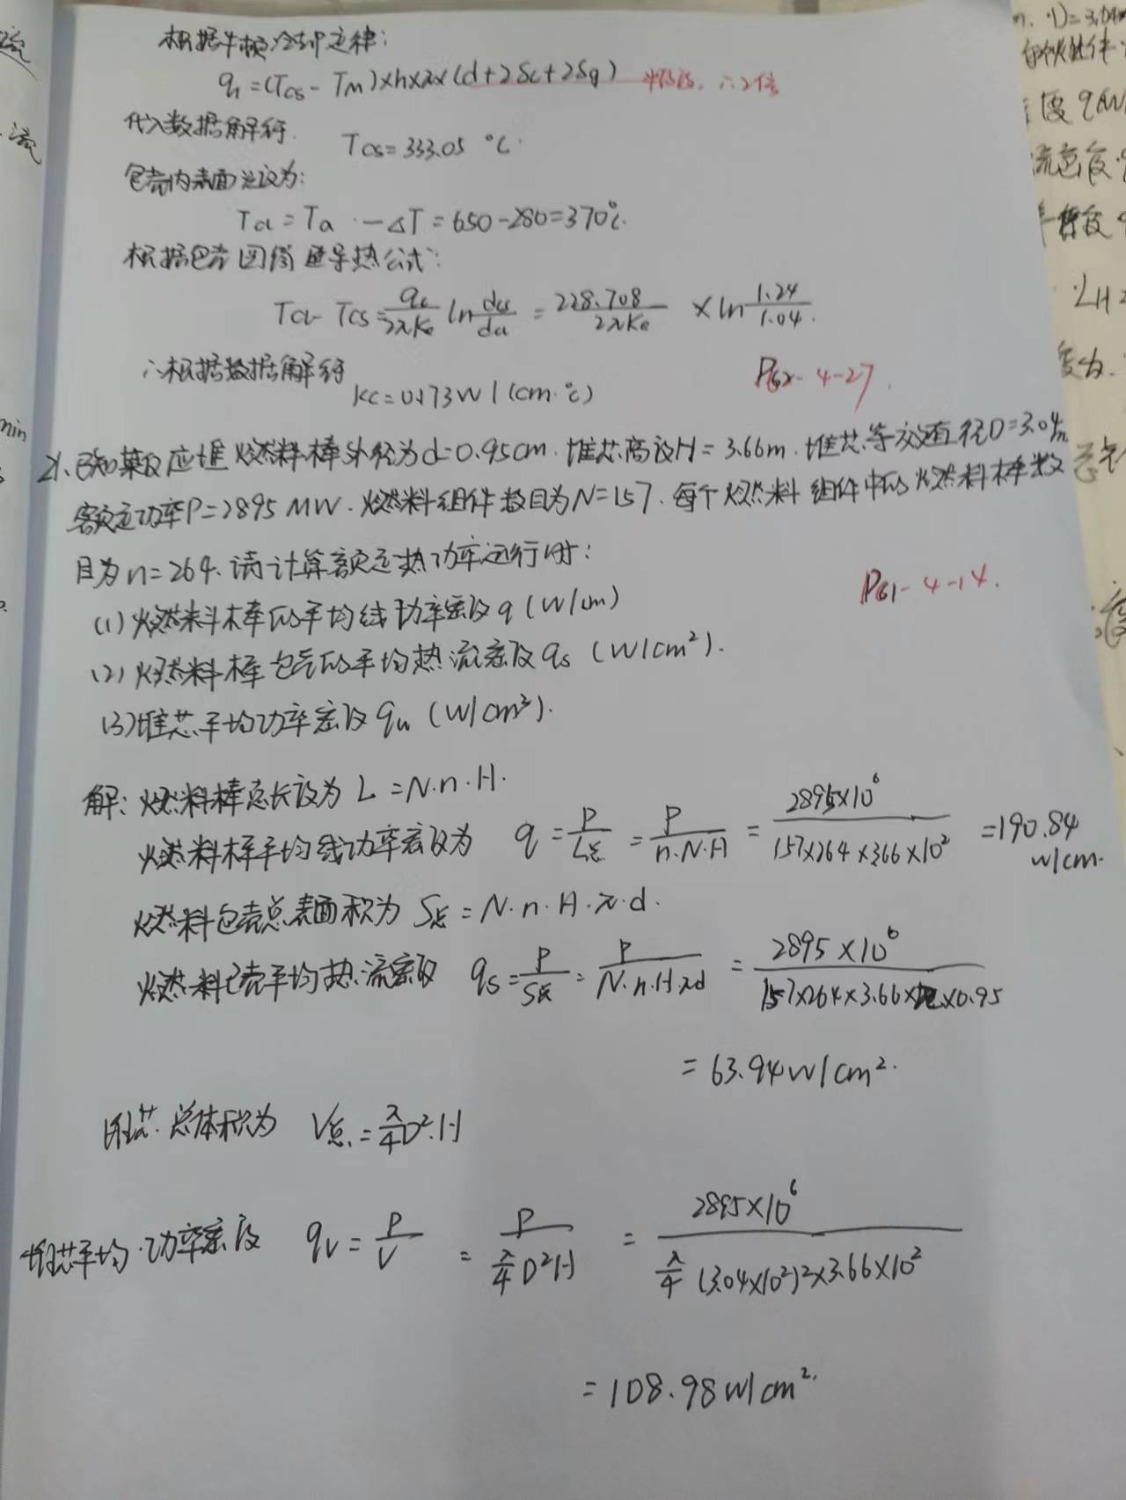 根据牛顿冷却定律:
q₁=(Tcs-Tm)×h×π×(d+2δc+2δg) 平板, ∴2倍
代入数据解得.
Tcs=333.05 ℃.
包壳内表面温度为:
Tci=Ta-ΔT=650-280=370℃.
根据包壳圆筒壁导热公式:
Tci-Tcs=qₗ/2πKc ln dcs/dci = 228.708/2πKc × ln 1.24/1.04.
∴根据数据解得
Kc=0.173W/(cm·℃)
P62-4-27.
21.已知某反应堆燃料棒外径为d=0.95cm.堆芯高度H=3.66m.堆芯等效直径D=3.04m
额定功率P=2895MW.燃料组件数目为N=157.每个燃料组件中的燃料棒数
目为n=264.请计算额定热功率运行时:
P61-4-14.
(1)燃料棒的平均线功率密度q(W/cm)
(2)燃料棒包壳的平均热流密度qs(W/cm²).
(3)堆芯平均功率密度qv(W/cm³).
解:燃料棒总长度为L=N·n·H.
燃料棒平均线功率密度为 q=P/L总=P/n·N·H=2895×10⁶/157×264×3.66×10²=190.84
W/cm.
燃料包壳总表面积为S总=N·n·H·π·d.
燃料包壳平均热流密度 qs=P/S总=P/N·n·H·πd=2895×10⁶/157×264×3.66×π×0.95
=63.94W/cm².
堆芯总体积为 V总=π/4D²·H
堆芯平均功率密度 qv=P/V=P/π/4D²H=2895×10⁶/π/4(3.04×10²)²×3.66×10²
=108.98W/cm².